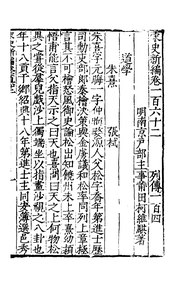 宋史新編卷一百六十二　列傳一百四
明南京戶部主事莆田柯維騏著
道學
朱熹　張栻
朱熹字元晦一字仲晦婺源人父松字喬年第進士歷
司勳吏部郎秦檜決策與金虜議和松率同列上章極
言其不可檜怒風御史論松出知饒州未上卒熹幼穎
悟甫能言父指天示之曰天也熹問曰天之上何物松
異之從羣兒戲沙上獨端坐以指畫沙視之八卦也
年十八貢于鄉紹興十八年第進士主同安簿選邑秀